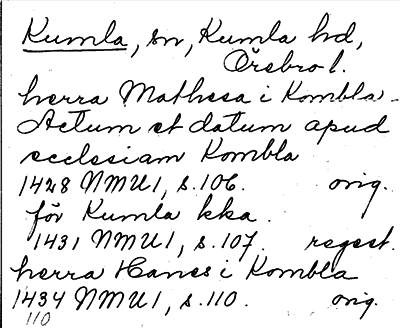 Kumla, sn, Kumla hd,
Örebro l.
herra Mathssa i Kombla -
Actum et datum apud
ecclesiam Kombla
1428 NMU1, s. 106. orig.
för Kumla kka.
1431 NMU1, s. 107. regest.
herra Hanes i Kombla
1434 NMU1, s. 110. orig.
110